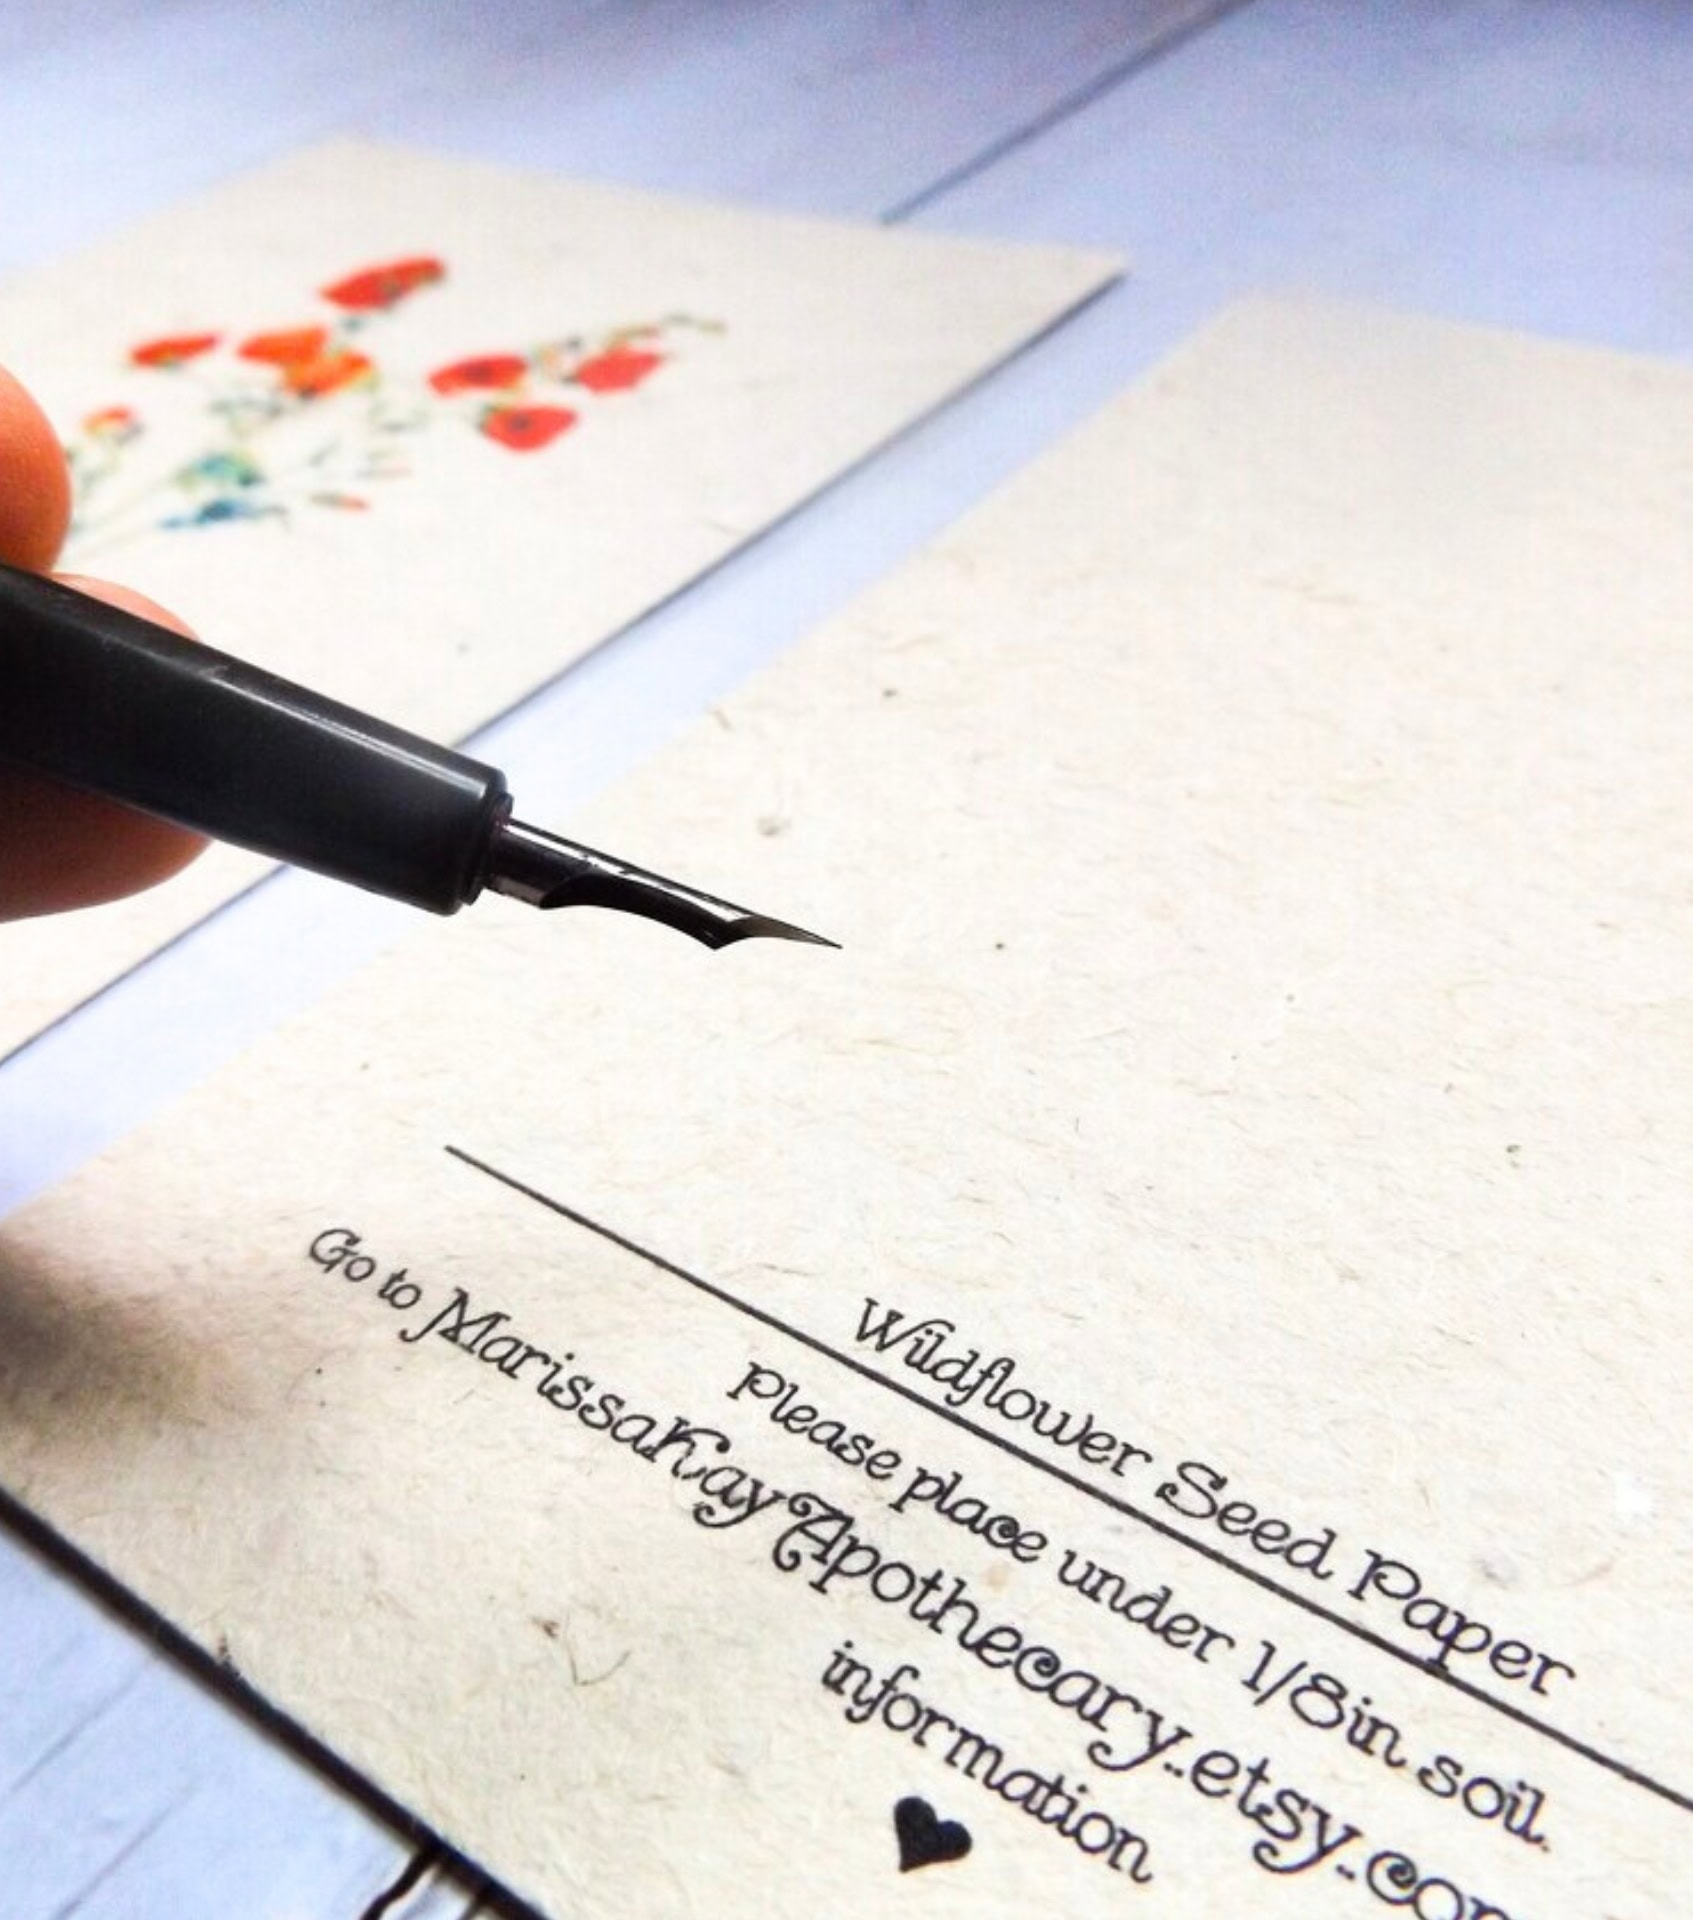 Wildflower Seed Paper
Please place under 1/8in soil.
Go to MarissaKayApothecary.etsy.com
information